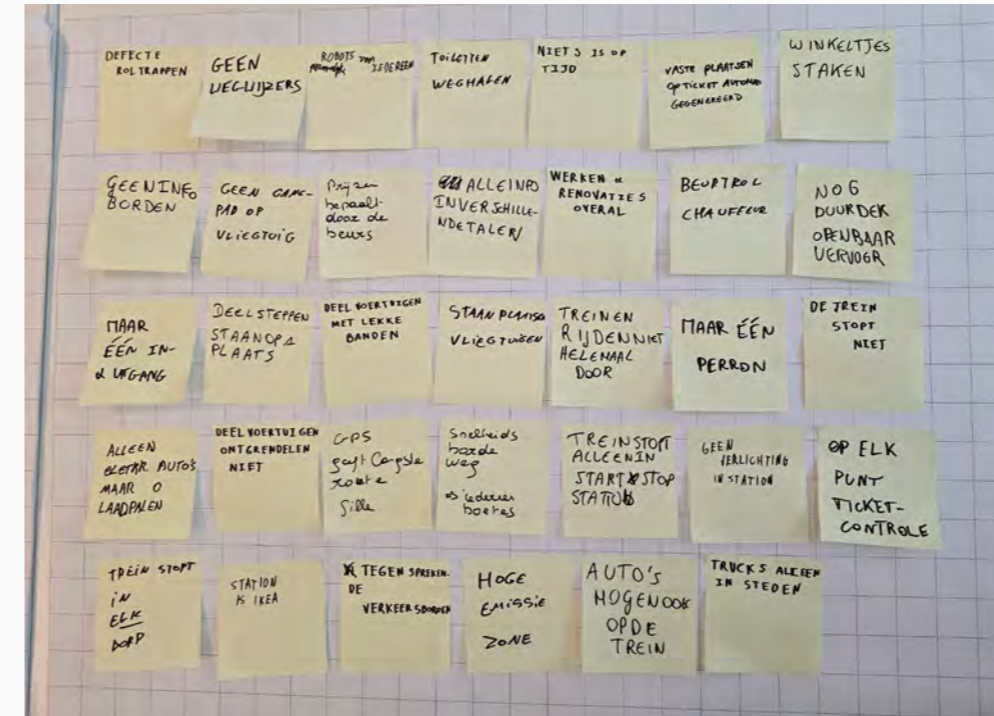 DEFECTE
ROLTRAPPEN
GEEN
WEGWIJZERS
ROBOTS
IEDEREEN
TOILETTEN
WEGHALEN
NIETS IS OP
TIJD
VASTE PLAATSEN
OP TICKET
GEGENEREERD
WINKELTJES
STAKEN
GEEN INFO
BORDEN
GEEN GANG-
PAD OP
VLIEGTUIG
Prijzen
bepaalt
door de
beurs
ALLE INFO
IN VERSCHILLE-
NDE TALEN
WERKEN &
RENOVATIES
OVERAL
BEURTROL
CHAUFFEUR
NOG
DUURDER
OPENBAAR
VERVOER
MAAR
ÉÉN IN-
& UITGANG
DEELSTEPPEN
STAAN OP 1
PLAATS
DEEL VOERTUIGEN
MET LEKKE
BANDEN
STAAN PLAATSEN
VLIEGTUIGEN
TREINEN
RIJDEN NIET
HELEMAAL
DOOR
MAAR ÉÉN
PERRON
DE TREIN
STOPT
NIET
ALLEEN
ELEKTR. AUTO'S
MAAR 0
LAADPALEN
DEEL VOERTUIGEN
ONTGRENDELEN
NIET
GPS
geeft langste
route
Snelheids
borde
weg
iedereen
boetes
TREIN STOPT
ALLEEN IN
START & STOP
STATION
GEEN
VERLICHTING
IN STATION
OP ELK
PUNT
TICKET-
CONTROLE
TREIN STOPT
IN
ELK
DORP
STATION
IS IKEA
TEGENSPREKEN-
DE
VERKEERSBORDEN
HOGE
EMISSIE
ZONE
AUTO'S
MOGEN OOK
OP DE
TREIN
TRUCKS ALLEEN
IN STEDEN